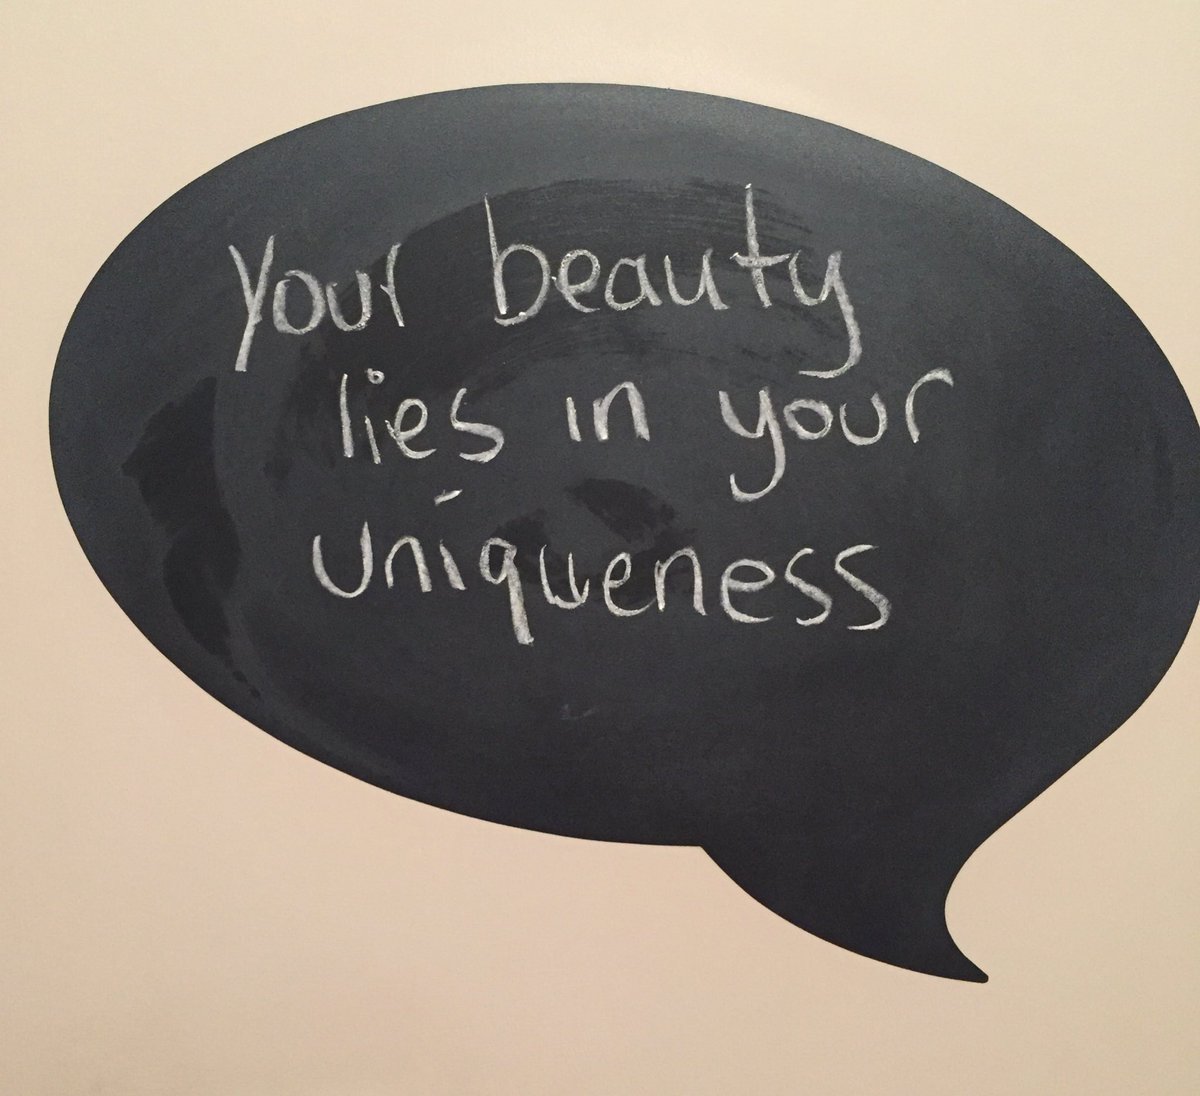 Your beauty
lies in your
uniqueness